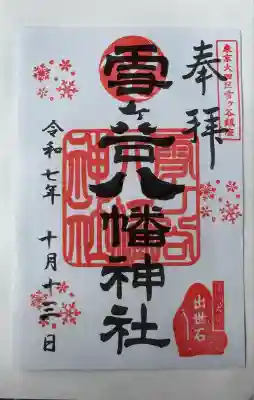 奉拝
東京大田区雪ヶ谷鎮座
雪ヶ谷八幡神社
雪ヶ谷八幡神社
令和七年 十月十三日
出世石